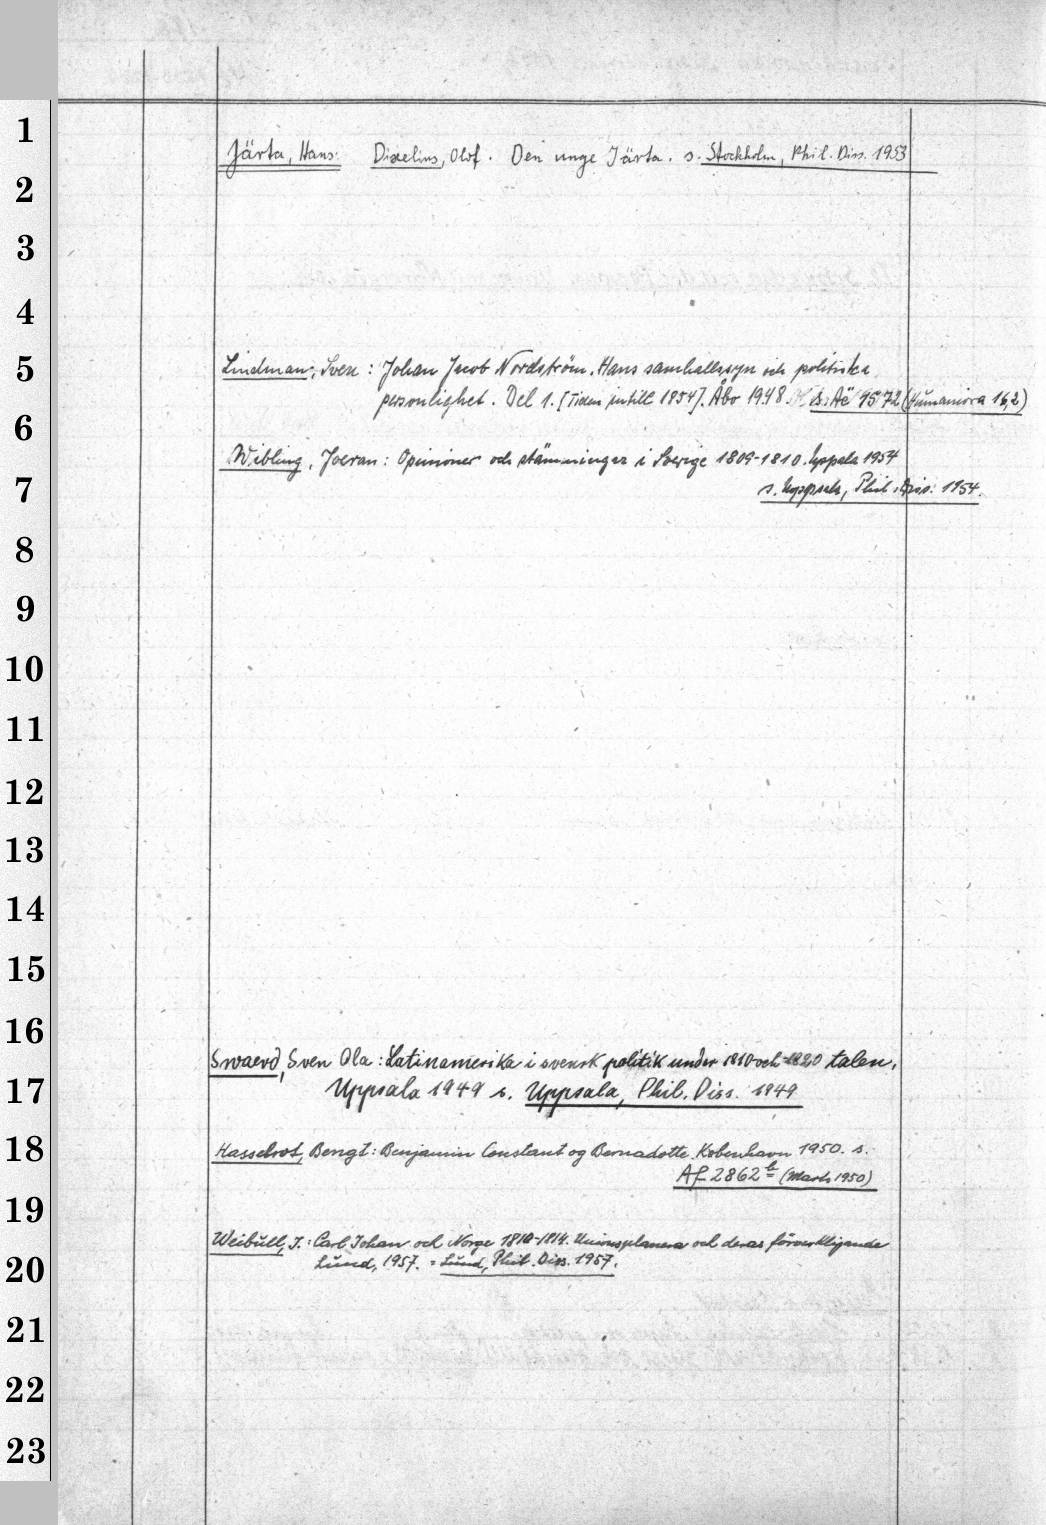 1
2
3
4
5
6
7
8
9
10
11
12
13
14
15
16
17
18
19
20
21
22
23
Järta, Hans: Dixelius, Olof. Den unge Järta. s. Stockholm, Phil. Diss. 1953
Lindman, Sven: Johan Jacob Nordström. Hans samhällssyn och politiska
personlighet. Del 1. [Tiden intill 1854]. Åbo 1948. s. Aë 9572 (Humaniora 16,2)
Wibling, Joeran: Opinioner och stämningar i Sverige 1809-1810. Uppsala 1954
s. Uppsala, Phil. Diss. 1954.
Swaerd, Sven Ola: Latinamerika i svensk politik under 1810-och 1820 talen,
Uppsala 1949 s. Uppsala, Phil. Diss. 1949
Hasselrot, Bengt: Benjamin Constant og Bernadotte. København 1950. s.
Af 2862 b (Marts 1950)
Weibull, J.: Carl Johan och Norge 1810-1814. Unionsplanera och deras förverkligande
Lund, 1957. = Lund, Phil. Diss. 1957.